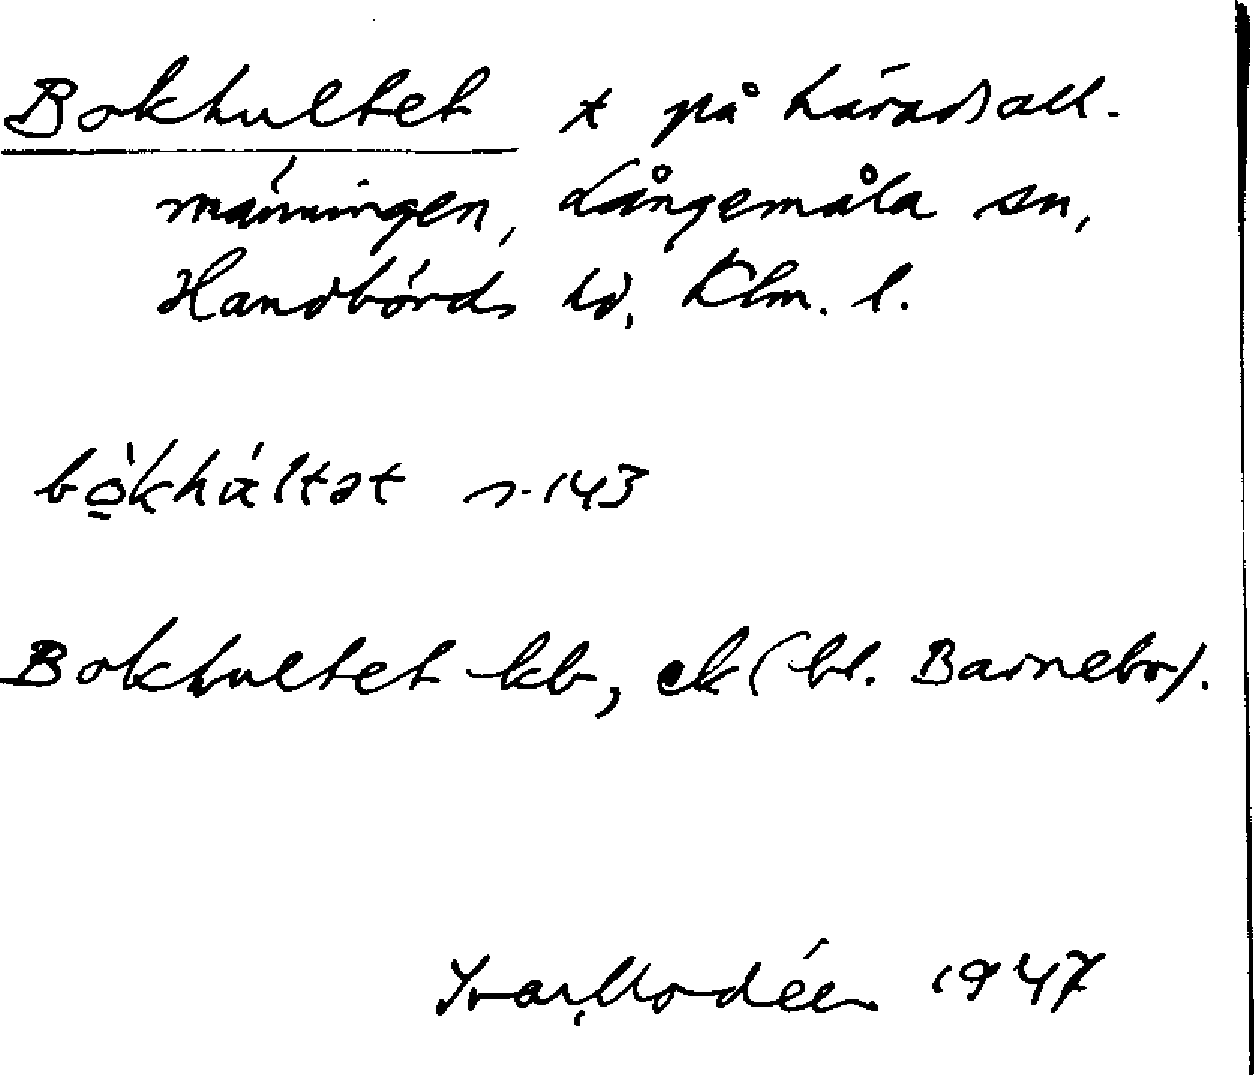 Bokhultet t på häradsall-
männingen, Långemåla sn,
Handbörds hd, Klm. l.
bò̱khúltət s. 143
Bokhultet kb, ek (bl. Barnebo).
Ivar Modéer 1947